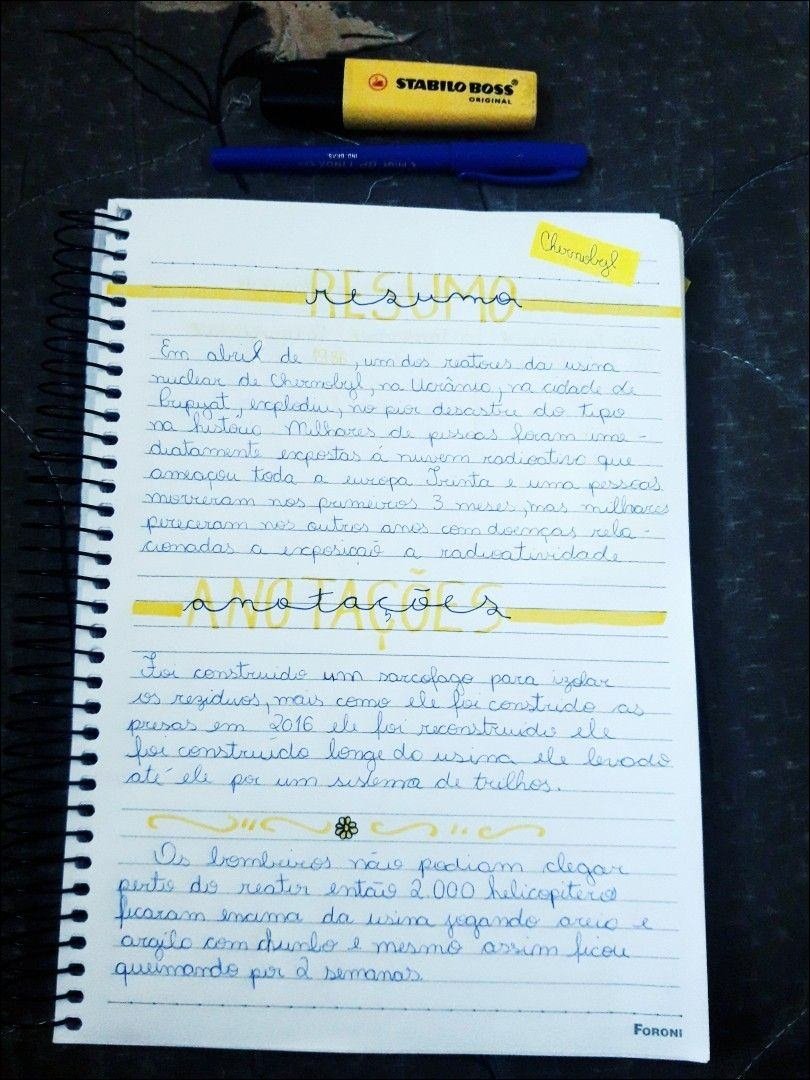 STABILO BOSS®
ORIGINAL
IND. BRAS.
Chernobyl
RESUMO
resumo
Em abril de 1986, um dos reatores da usina
nuclear de Chernobyl, na Ucrânia, na cidade de
Pripyat, explodiu, no pior desastre do tipo
na história Milhares de pessoas foram ime-
diatamente expostas á nuvem radioativa que
ameaçou toda a europa Trinta e uma pessoas
morreram nos primeiros 3 meses, mas milhares
pereceram nos outros anos com doenças rela-
cionadas a exposição a radioatividade
ANOTAÇÕES
anotações
Foi construido um sarcofago para izolar
os reziduos, mais como ele foi construido as
presas em 2016 ele foi reconstruido ele
foi construido longe da usina ele levado
até ele por um sistema de trilhos.
Os bombeiros não podiam chegar
perto do reator então 2.000 helicopiteros
ficaram encima da usina jogando areia e
argila com chumbo e mesmo assim ficou
queimando por 2 semanas
FORONI